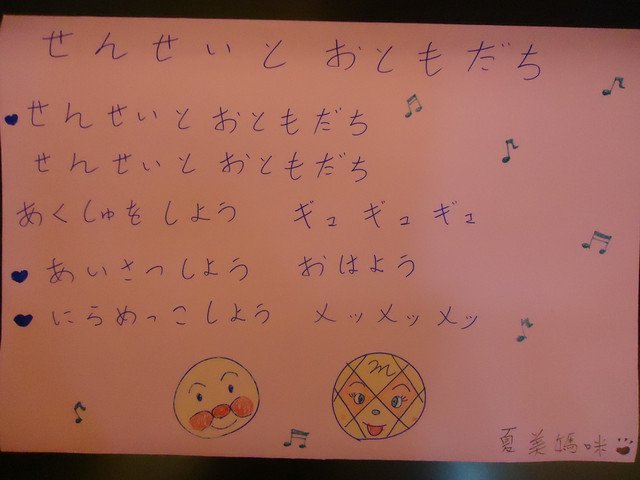 せんせいと おともだち
せんせいと おともだち
せんせいと おともだち
あくしゅを しよう ギュ ギュ ギュ
あいさつしよう おはよう
にらめっこしよう メッメッメッ
m
夏美媽咪